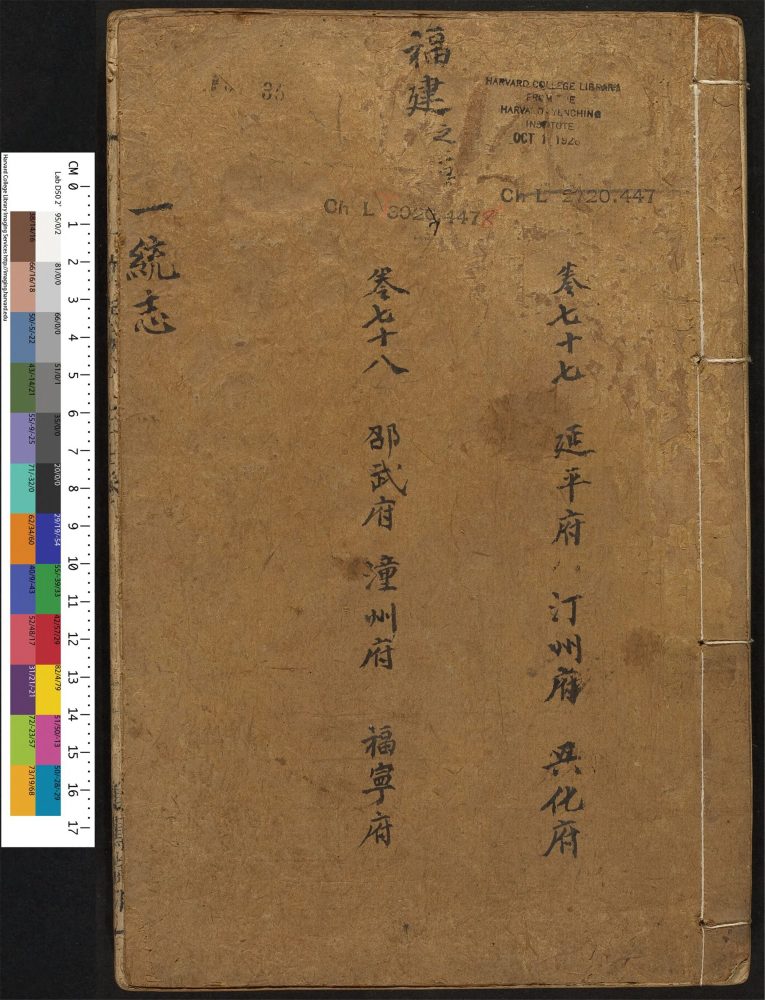 福建之
HARVARD COLLEGE LIBRARY
FROM THE
HARVARD-YENCHING
INSTITUTE
OCT 1 1928
Ch L 2720.447
Ch L 3020.4478
卷七十七 延平府 汀州府 興化府
卷七十八 邵武府 潼州府 福寧府
一統志
CM 0 1 2 3 4 5 6 7 8 9 10 11 12 13 14 15 16 17
Lab D50 2° 95/0/2 81/0/0 66/0/0 51/0/1 35/0/0 20/0/0 29/19/-54 55/-39/33 42/57/29 82/4/79 51/50/-13 50/-28/-29
38/14/16 66/16/18 50/-5/-22 43/-14/21 55/9/-25 71/-32/0 62/34/60 40/9/-43 52/48/17 31/21/-21 72/-23/57 73/19/68
Harvard College Library Imaging Services http://imaging.harvard.edu